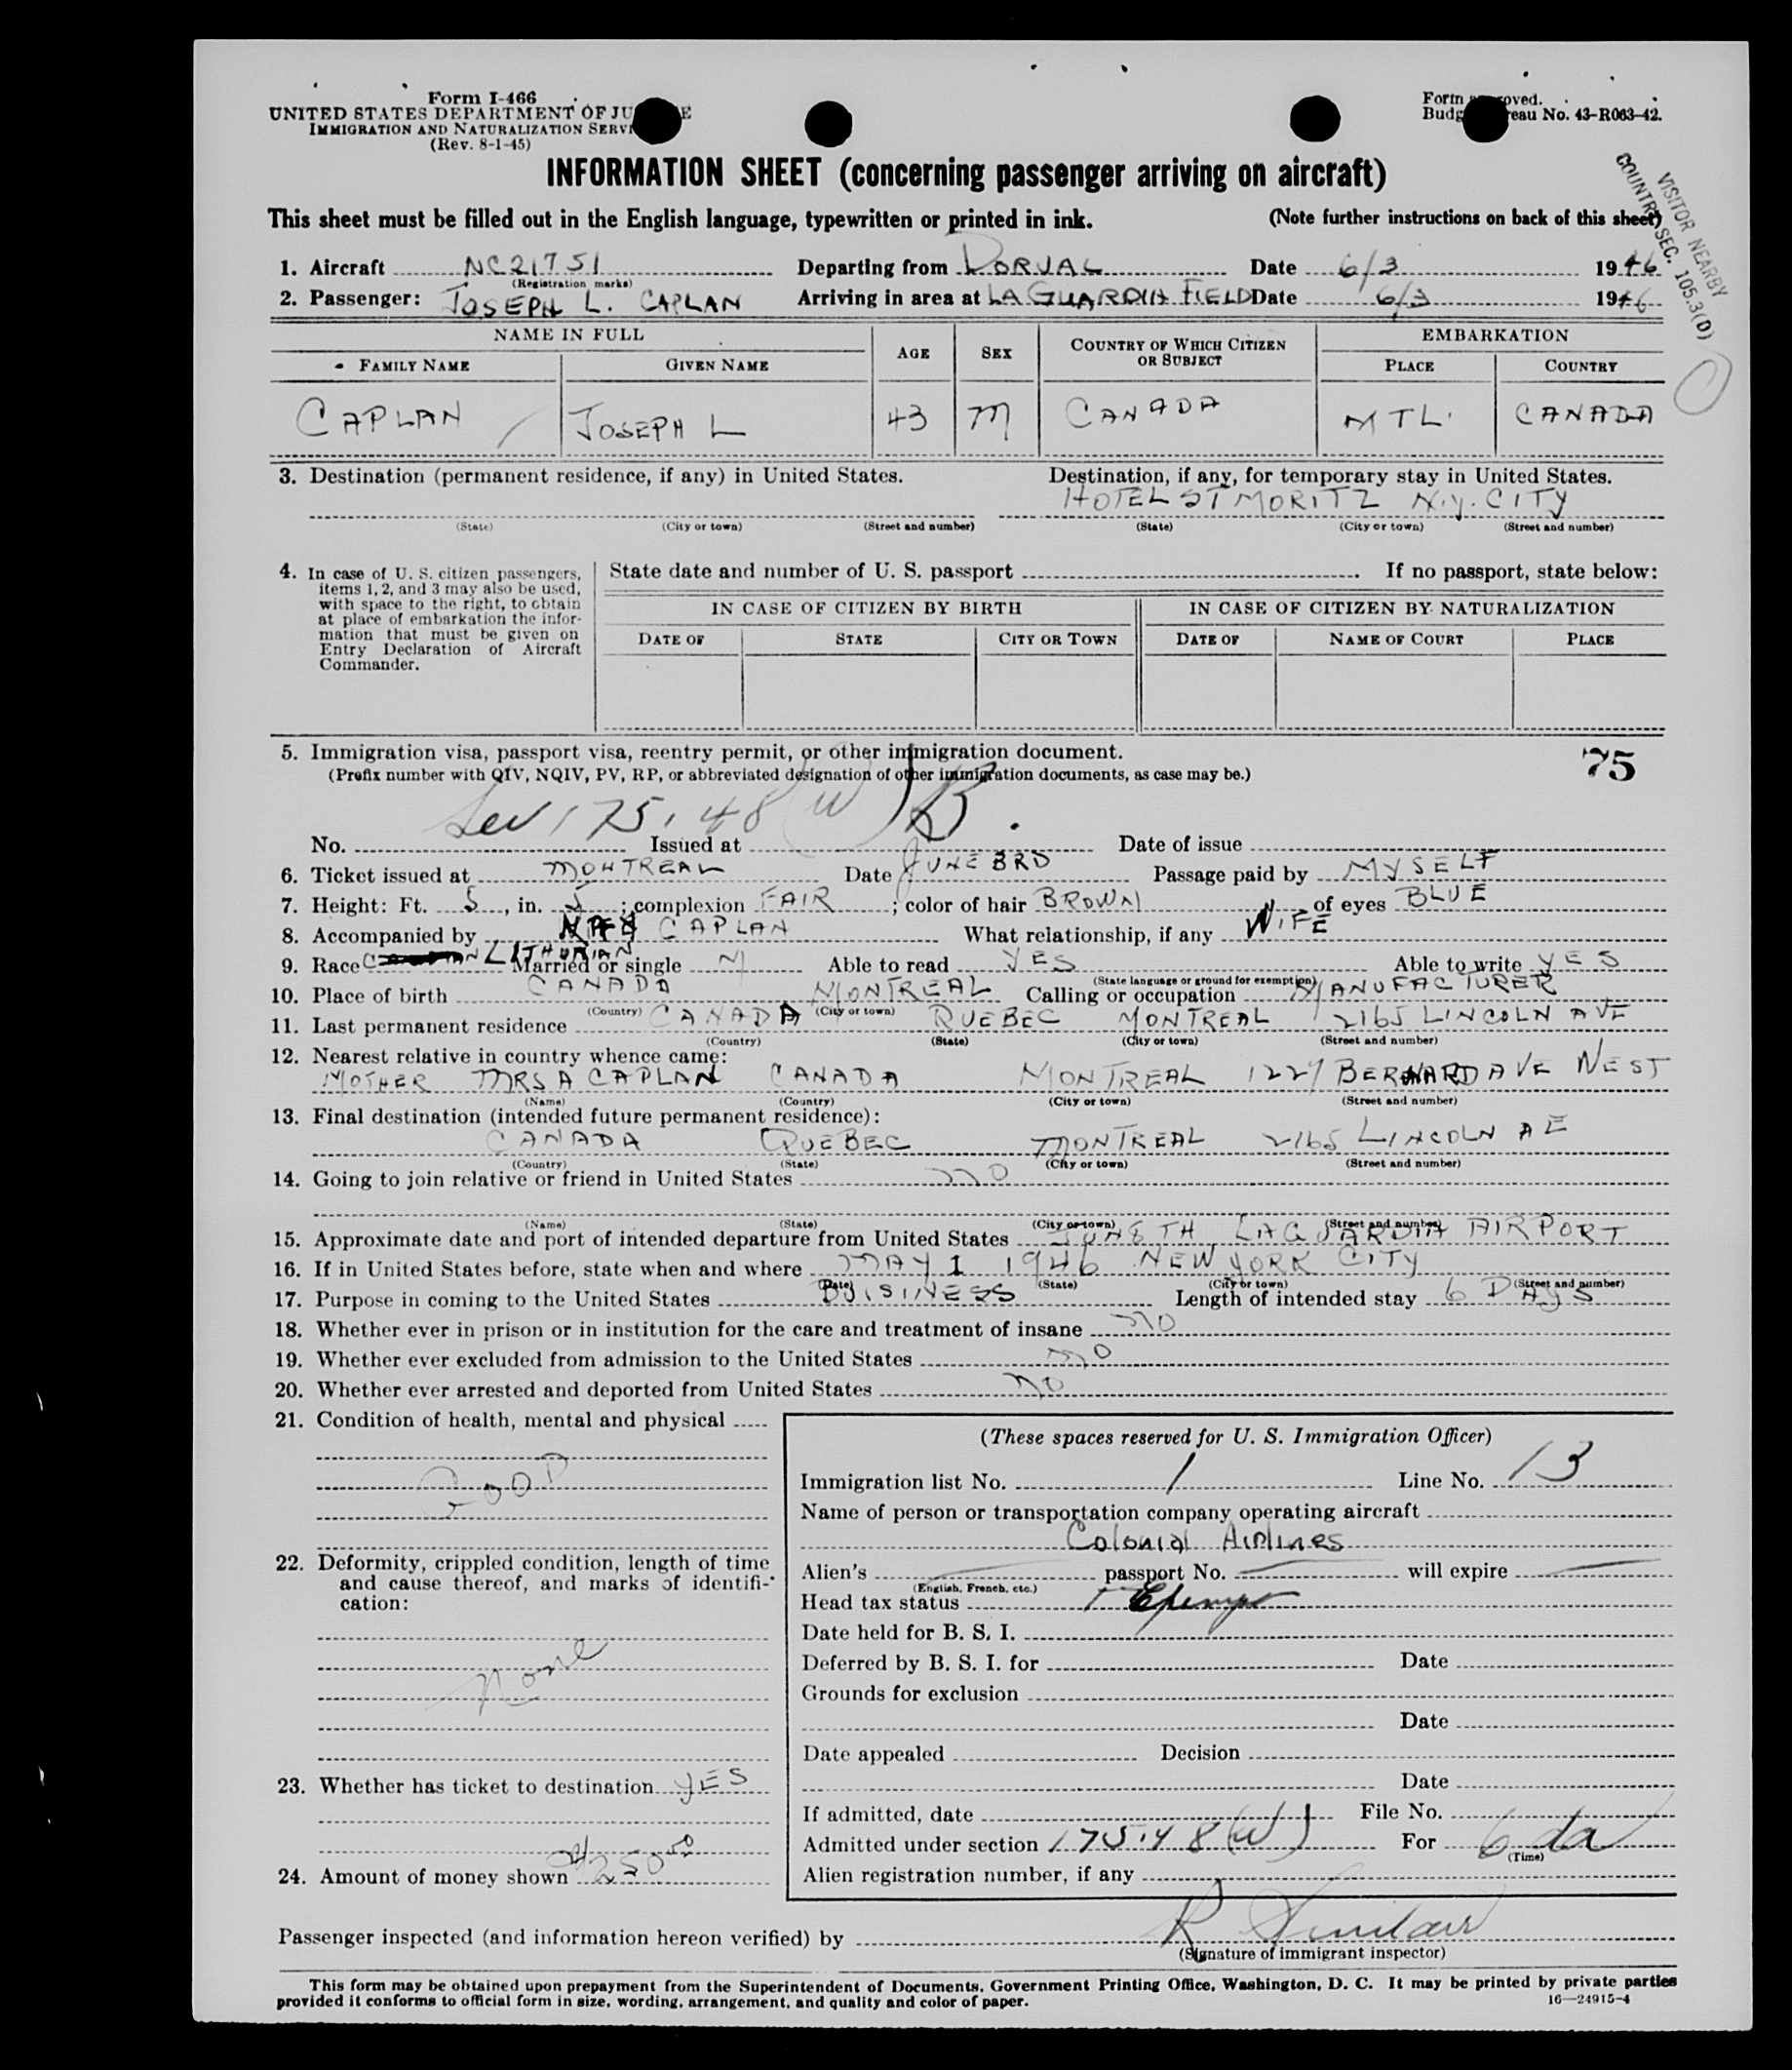 Form I-466
UNITED STATES DEPARTMENT OF JU E
IMMIGRATION AND NATURALIZATION SERVI
(Rev. 8-1-45)
Form oved.
Budg eau No. 43-R063-42.
INFORMATION SHEET (concerning passenger arriving on aircraft)
This sheet must be filled out in the English language, typewritten or printed in ink. (Note further instructions on back of this sheet)
VISITOR NEARBY
COUNTRY SEC. 105.3(D)
1. Aircraft NC21751 Departing from DORVAL Date 6/3 1946
(Registration marks)
2. Passenger: JOSEPH L. CAPLAN Arriving in area at LAGUARDIA FIELD Date 6/3 1946
NAME IN FULL AGE SEX COUNTRY OF WHICH CITIZEN OR SUBJECT EMBARKATION
FAMILY NAME GIVEN NAME PLACE COUNTRY
CAPLAN JOSEPH L 43 M CANADA MTL. CANADA
3. Destination (permanent residence, if any) in United States. Destination, if any, for temporary stay in United States.
HOTEL ST MORITZ N.Y. CITY
(State) (City or town) (Street and number) (State) (City or town) (Street and number)
4. In case of U. S. citizen passengers,
items 1, 2, and 3 may also be used,
with space to the right, to obtain
at place of embarkation the infor-
mation that must be given on
Entry Declaration of Aircraft
Commander.
State date and number of U. S. passport . If no passport, state below:
IN CASE OF CITIZEN BY BIRTH IN CASE OF CITIZEN BY NATURALIZATION
DATE OF STATE CITY OR TOWN DATE OF NAME OF COURT PLACE
5. Immigration visa, passport visa, reentry permit, or other immigration document.
(Prefix number with QIV, NQIV, PV, RP, or abbreviated designation of other immigration documents, as case may be.)
75
175.48 (W) B.
No. Issued at Date of issue
6. Ticket issued at MONTREAL Date JUNE 3RD Passage paid by MYSELF
7. Height: Ft. 5, in. 5; complexion FAIR; color of hair BROWN of eyes BLUE
8. Accompanied by CAPLAN What relationship, if any WIFE
9. Race LITHUNIAN Married or single M Able to read YES Able to write YES
(State language or ground for exemption)
10. Place of birth CANADA MONTREAL Calling or occupation MANUFACTURER
(Country) (City or town)
11. Last permanent residence CANADA QUEBEC MONTREAL 2165 LINCOLN AVE
(Country) (State) (City or town) (Street and number)
12. Nearest relative in country whence came:
MOTHER MRS A CAPLAN CANADA MONTREAL 1227 BERNARD AVE WEST
(Name) (Country) (City or town) (Street and number)
13. Final destination (intended future permanent residence):
CANADA QUEBEC MONTREAL 2165 LINCOLN AE
(Country) (State) (City or town) (Street and number)
14. Going to join relative or friend in United States NO
(Name) (State) (City or town) (Street and number)
15. Approximate date and port of intended departure from United States JUN 8TH LAGUARDIA AIRPORT
16. If in United States before, state when and where MAY 1 1946 NEW YORK CITY
(Date) (State) (City or town) (Street and number)
17. Purpose in coming to the United States BUISINESS Length of intended stay 6 DAYS
18. Whether ever in prison or in institution for the care and treatment of insane NO
19. Whether ever excluded from admission to the United States NO
20. Whether ever arrested and deported from United States NO
21. Condition of health, mental and physical
GOOD
22. Deformity, crippled condition, length of time
and cause thereof, and marks of identifi-
cation:
None
23. Whether has ticket to destination YES
24. Amount of money shown 250.00
(These spaces reserved for U. S. Immigration Officer)
Immigration list No. 1 Line No. 13
Name of person or transportation company operating aircraft
Colonial Airlines
Alien's passport No. will expire
(English, French, etc.)
Head tax status Exempt
Date held for B. S. I.
Deferred by B. S. I. for Date
Grounds for exclusion
Date
Date appealed Decision
Date
If admitted, date File No.
Admitted under section 175.48(W) For 6 da
(Time)
Alien registration number, if any
Passenger inspected (and information hereon verified) by R Sinclair
(Signature of immigrant inspector)
This form may be obtained upon prepayment from the Superintendent of Documents, Government Printing Office, Washington, D. C. It may be printed by private parties
provided it conforms to official form in size, wording, arrangement, and quality and color of paper. 16—24915-4